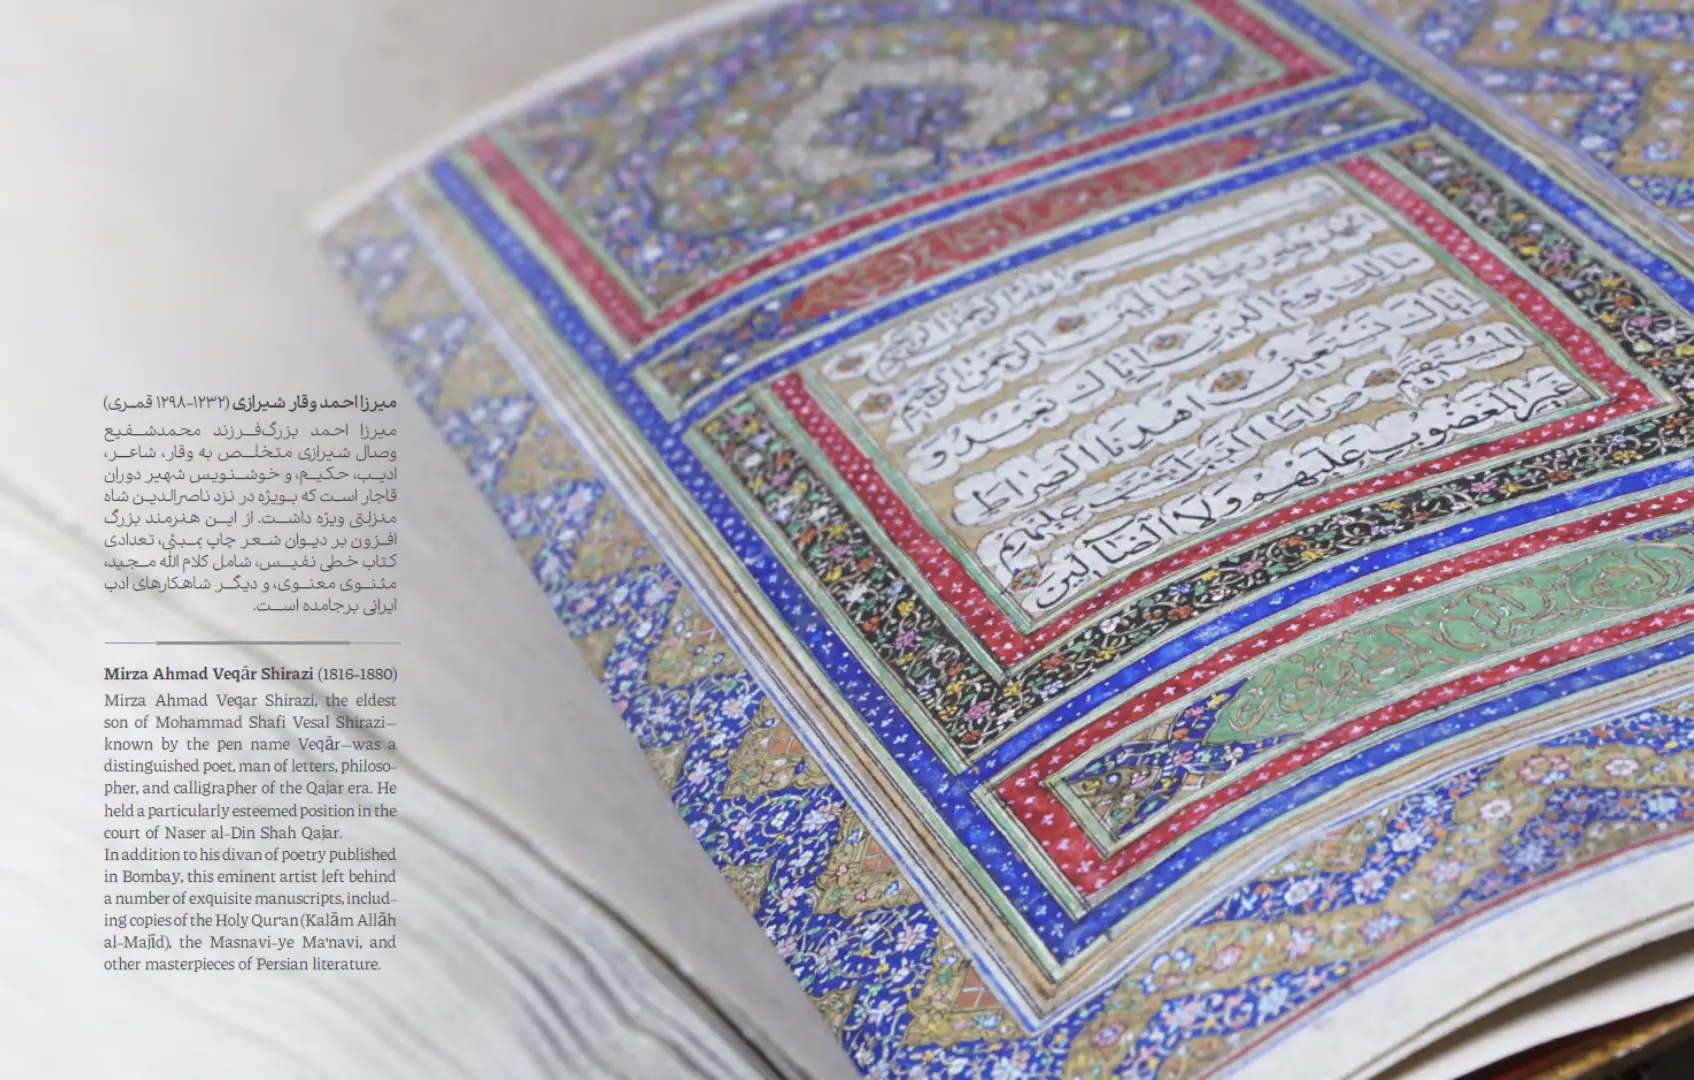 میرزا احمد وقار شیرازی (۱۲۳۲-۱۲۹۸ قمری)
میرزا احمد بزرگ‌فرزند محمدشفیع
وصال شیرازی متخلص به وقار، شاعر،
ادیب، حکیم، و خوشنویس شهیر دوران
قاجار است که بویژه در نزد ناصرالدین شاه
منزلتی ویژه داشت. از این هنرمند بزرگ
افزون بر دیوان شعر چاپ بمبئی، تعدادی
کتاب خطی نفیس، شامل کلام الله مجید،
مثنوی معنوی، و دیگر شاهکارهای ادب
ایرانی برجامده است.
Mirza Ahmad Veqār Shirazi (1816-1880)
Mirza Ahmad Veqar Shirazi, the eldest
son of Mohammad Shafi Vesal Shirazi—
known by the pen name Veqār—was a
distinguished poet, man of letters, philoso-
pher, and calligrapher of the Qajar era. He
held a particularly esteemed position in the
court of Naser al-Din Shah Qajar.
In addition to his divan of poetry published
in Bombay, this eminent artist left behind
a number of exquisite manuscripts, includ-
ing copies of the Holy Qur'an (Kalām Allāh
al-Majīd), the Masnavi-ye Ma'navi, and
other masterpieces of Persian literature.
بسم الله الرحمن الرحیم
الحمد لله رب العالمین الرحمن الرحیم
مالك یوم الدین ایاك نعبد و
ایاك نستعین اهدنا الصراط
المستقیم صراط الذین انعمت علیهم
غیر المغضوب علیهم ولا الضالین